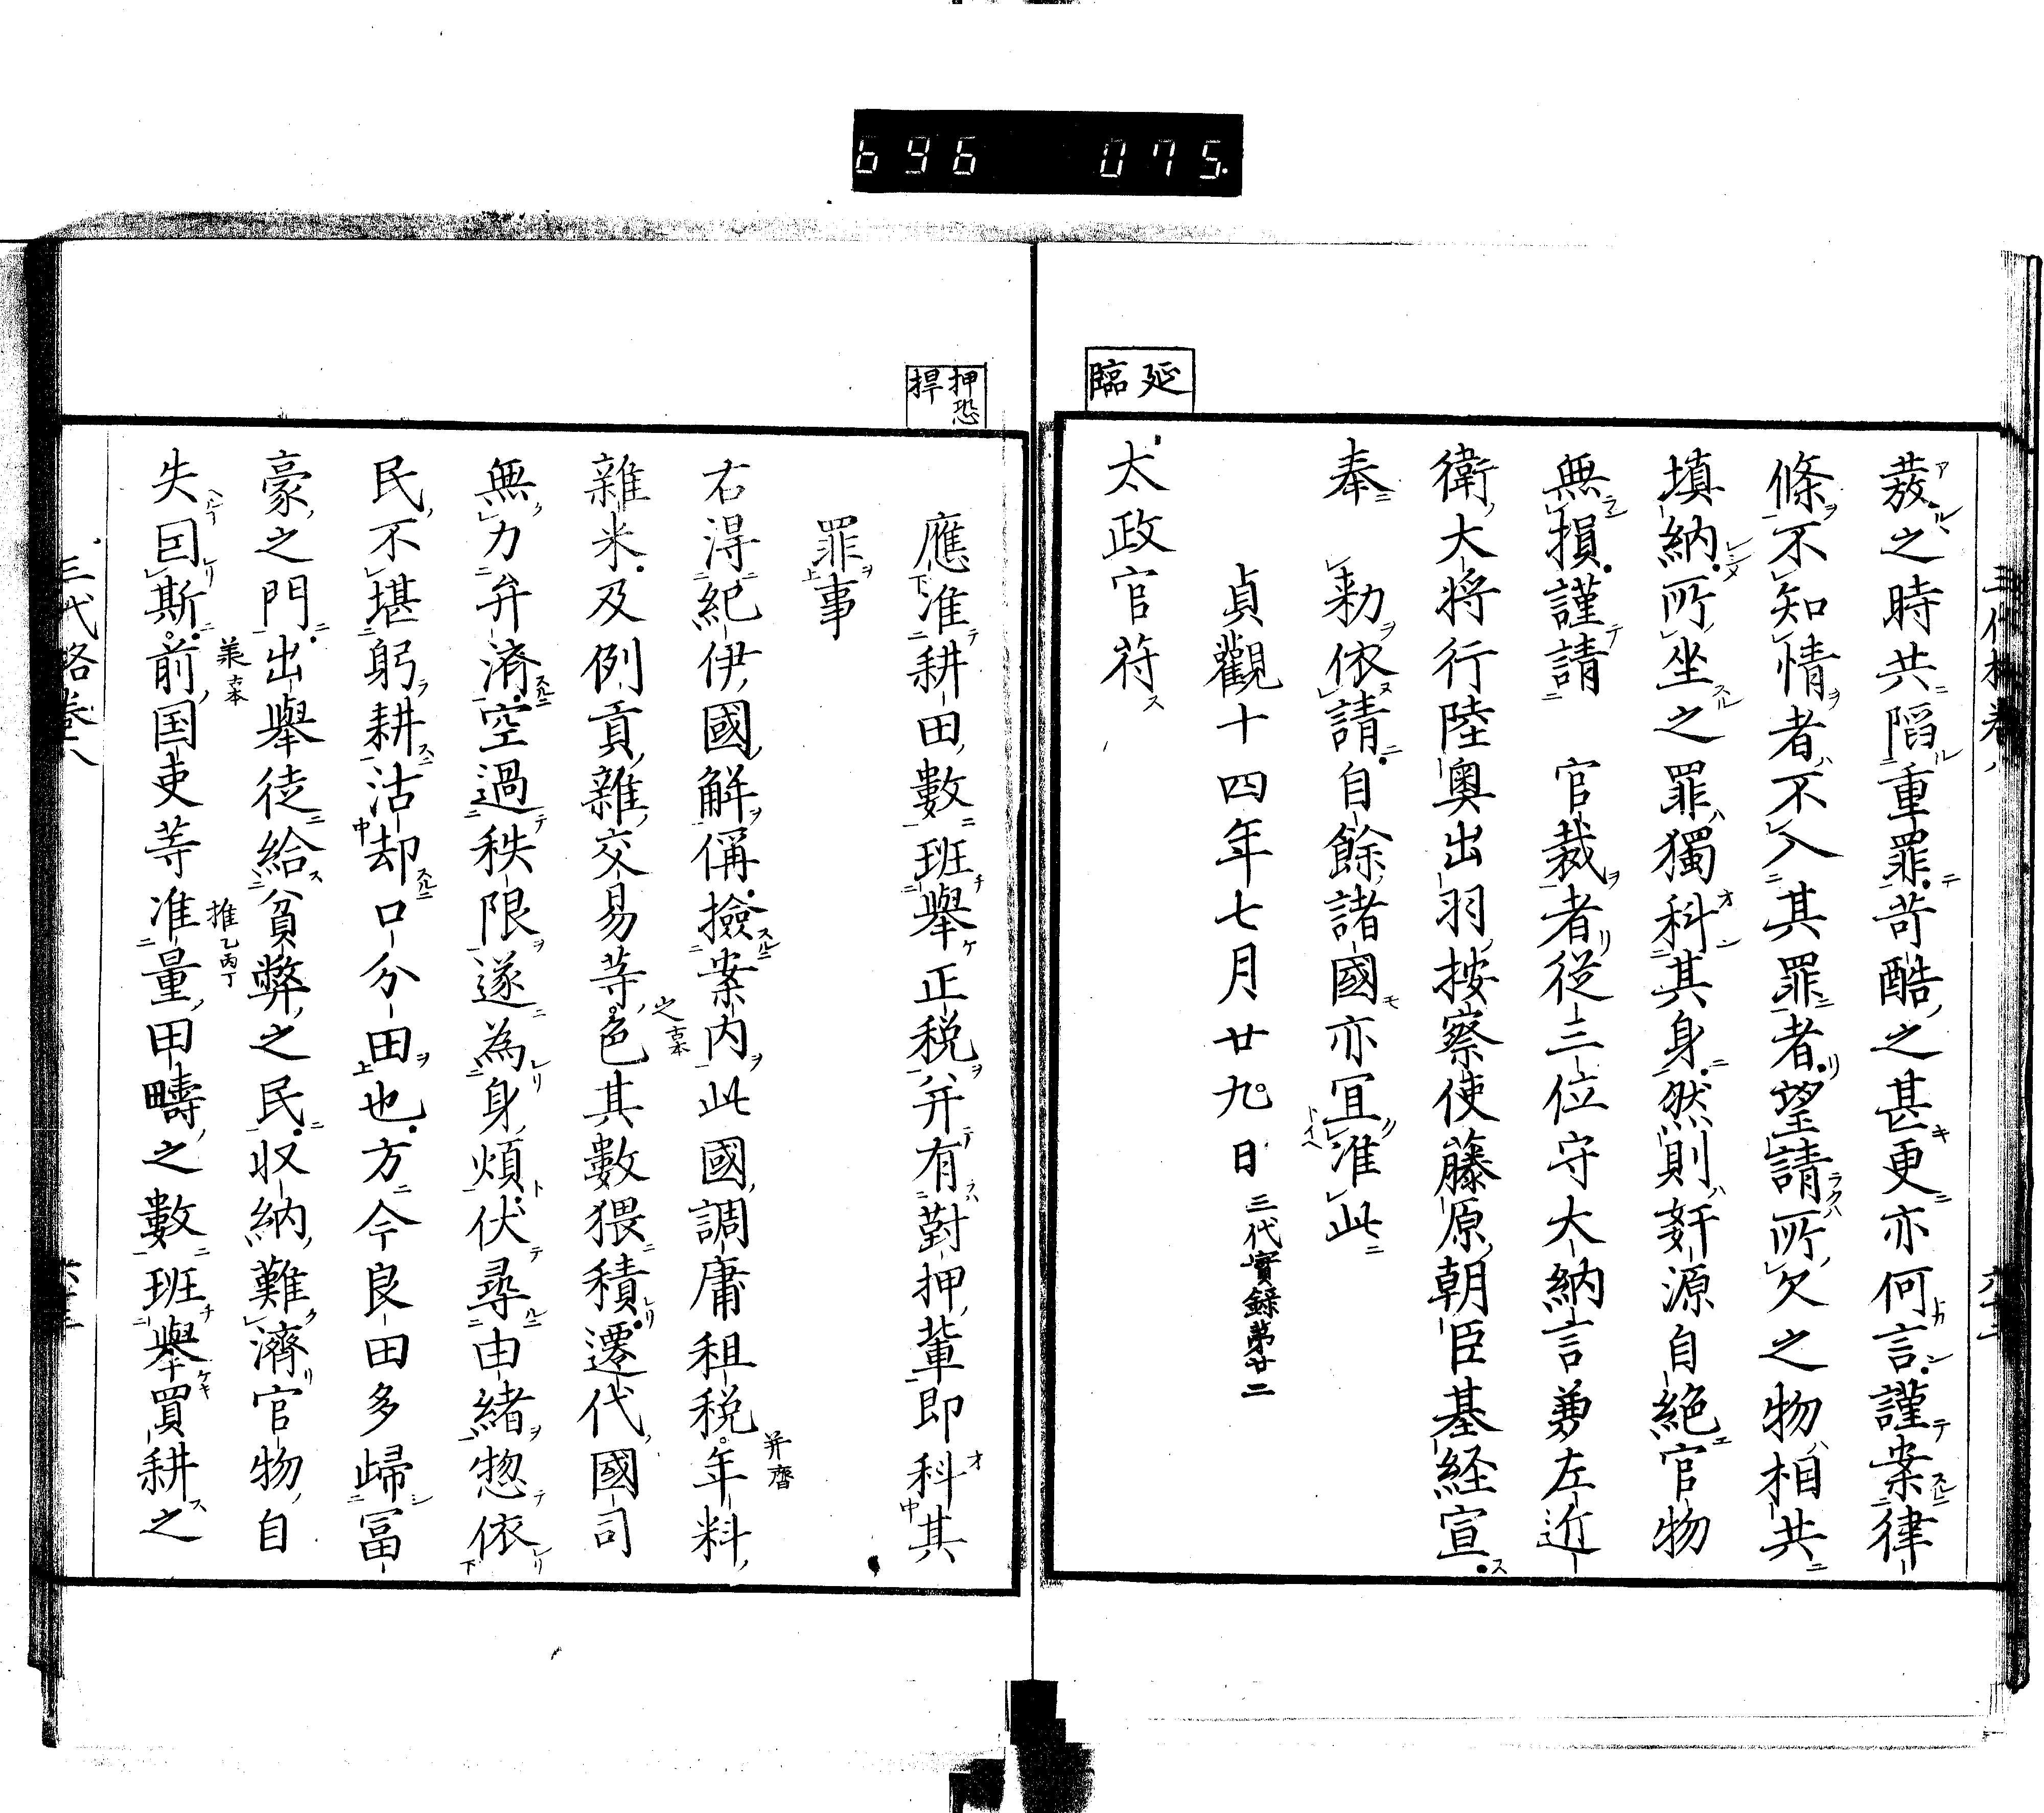 696 075
延臨
蕟之時共陷重罪苛酷之甚更亦何言謹案律
條不知情者不入其罪者望請所欠之物相共
填納所坐之罪獨科其身然則奸源自絶官物
無損謹請 官裁者從三位守大納言兼左近
衛大将行陸奥出羽按察使藤原朝臣基経宣
奉 勅依請自餘諸國亦冝准此
貞觀十四年七月廿九日 三代實録第廿二
太政官符
押恐捍
應准耕田數班舉正税并有對押輩即科其
罪事
右得紀伊國解偁撿案内此國調庸租税年料
雜米及例貢雜交易等色其數猥積遷代國司
無力弁濟空過秩限遂為身煩伏尋由緒惣依
民不堪躬耕沽却口分田也方今良田多歸冨
豪之門出舉徒給貧弊之民収納難濟官物自
失囙斯前国吏等准量田疇之數班舉買耕之
并齊
之古本
兼古本
推乙丙丁
三代格卷八